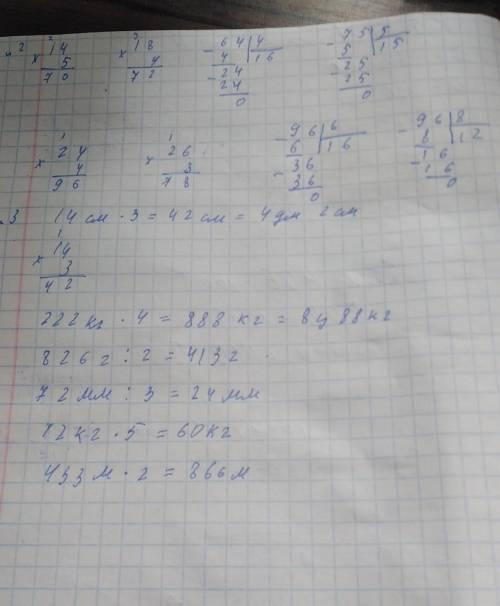 2 3
№2 × 14 × 18 - 64 | 4 - 75 | 5
5 4 4 | 16 5 | 15
70 72 - 24 - 25
24 25
0 0
1 1
× 24 × 26 - 96 | 6 - 96 | 8
4 3 6 | 16 8 | 12
96 78 - 36 - 16
36 16
0 0
.3 14 см · 3 = 42 см = 4 дм 2 см
1
× 14
3
42
222 кг · 4 = 888 кг = 8 ц 88 кг
826 г : 2 = 413 г
72 мм : 3 = 24 мм
12 кг · 5 = 60 кг
433 м · 2 = 866 м